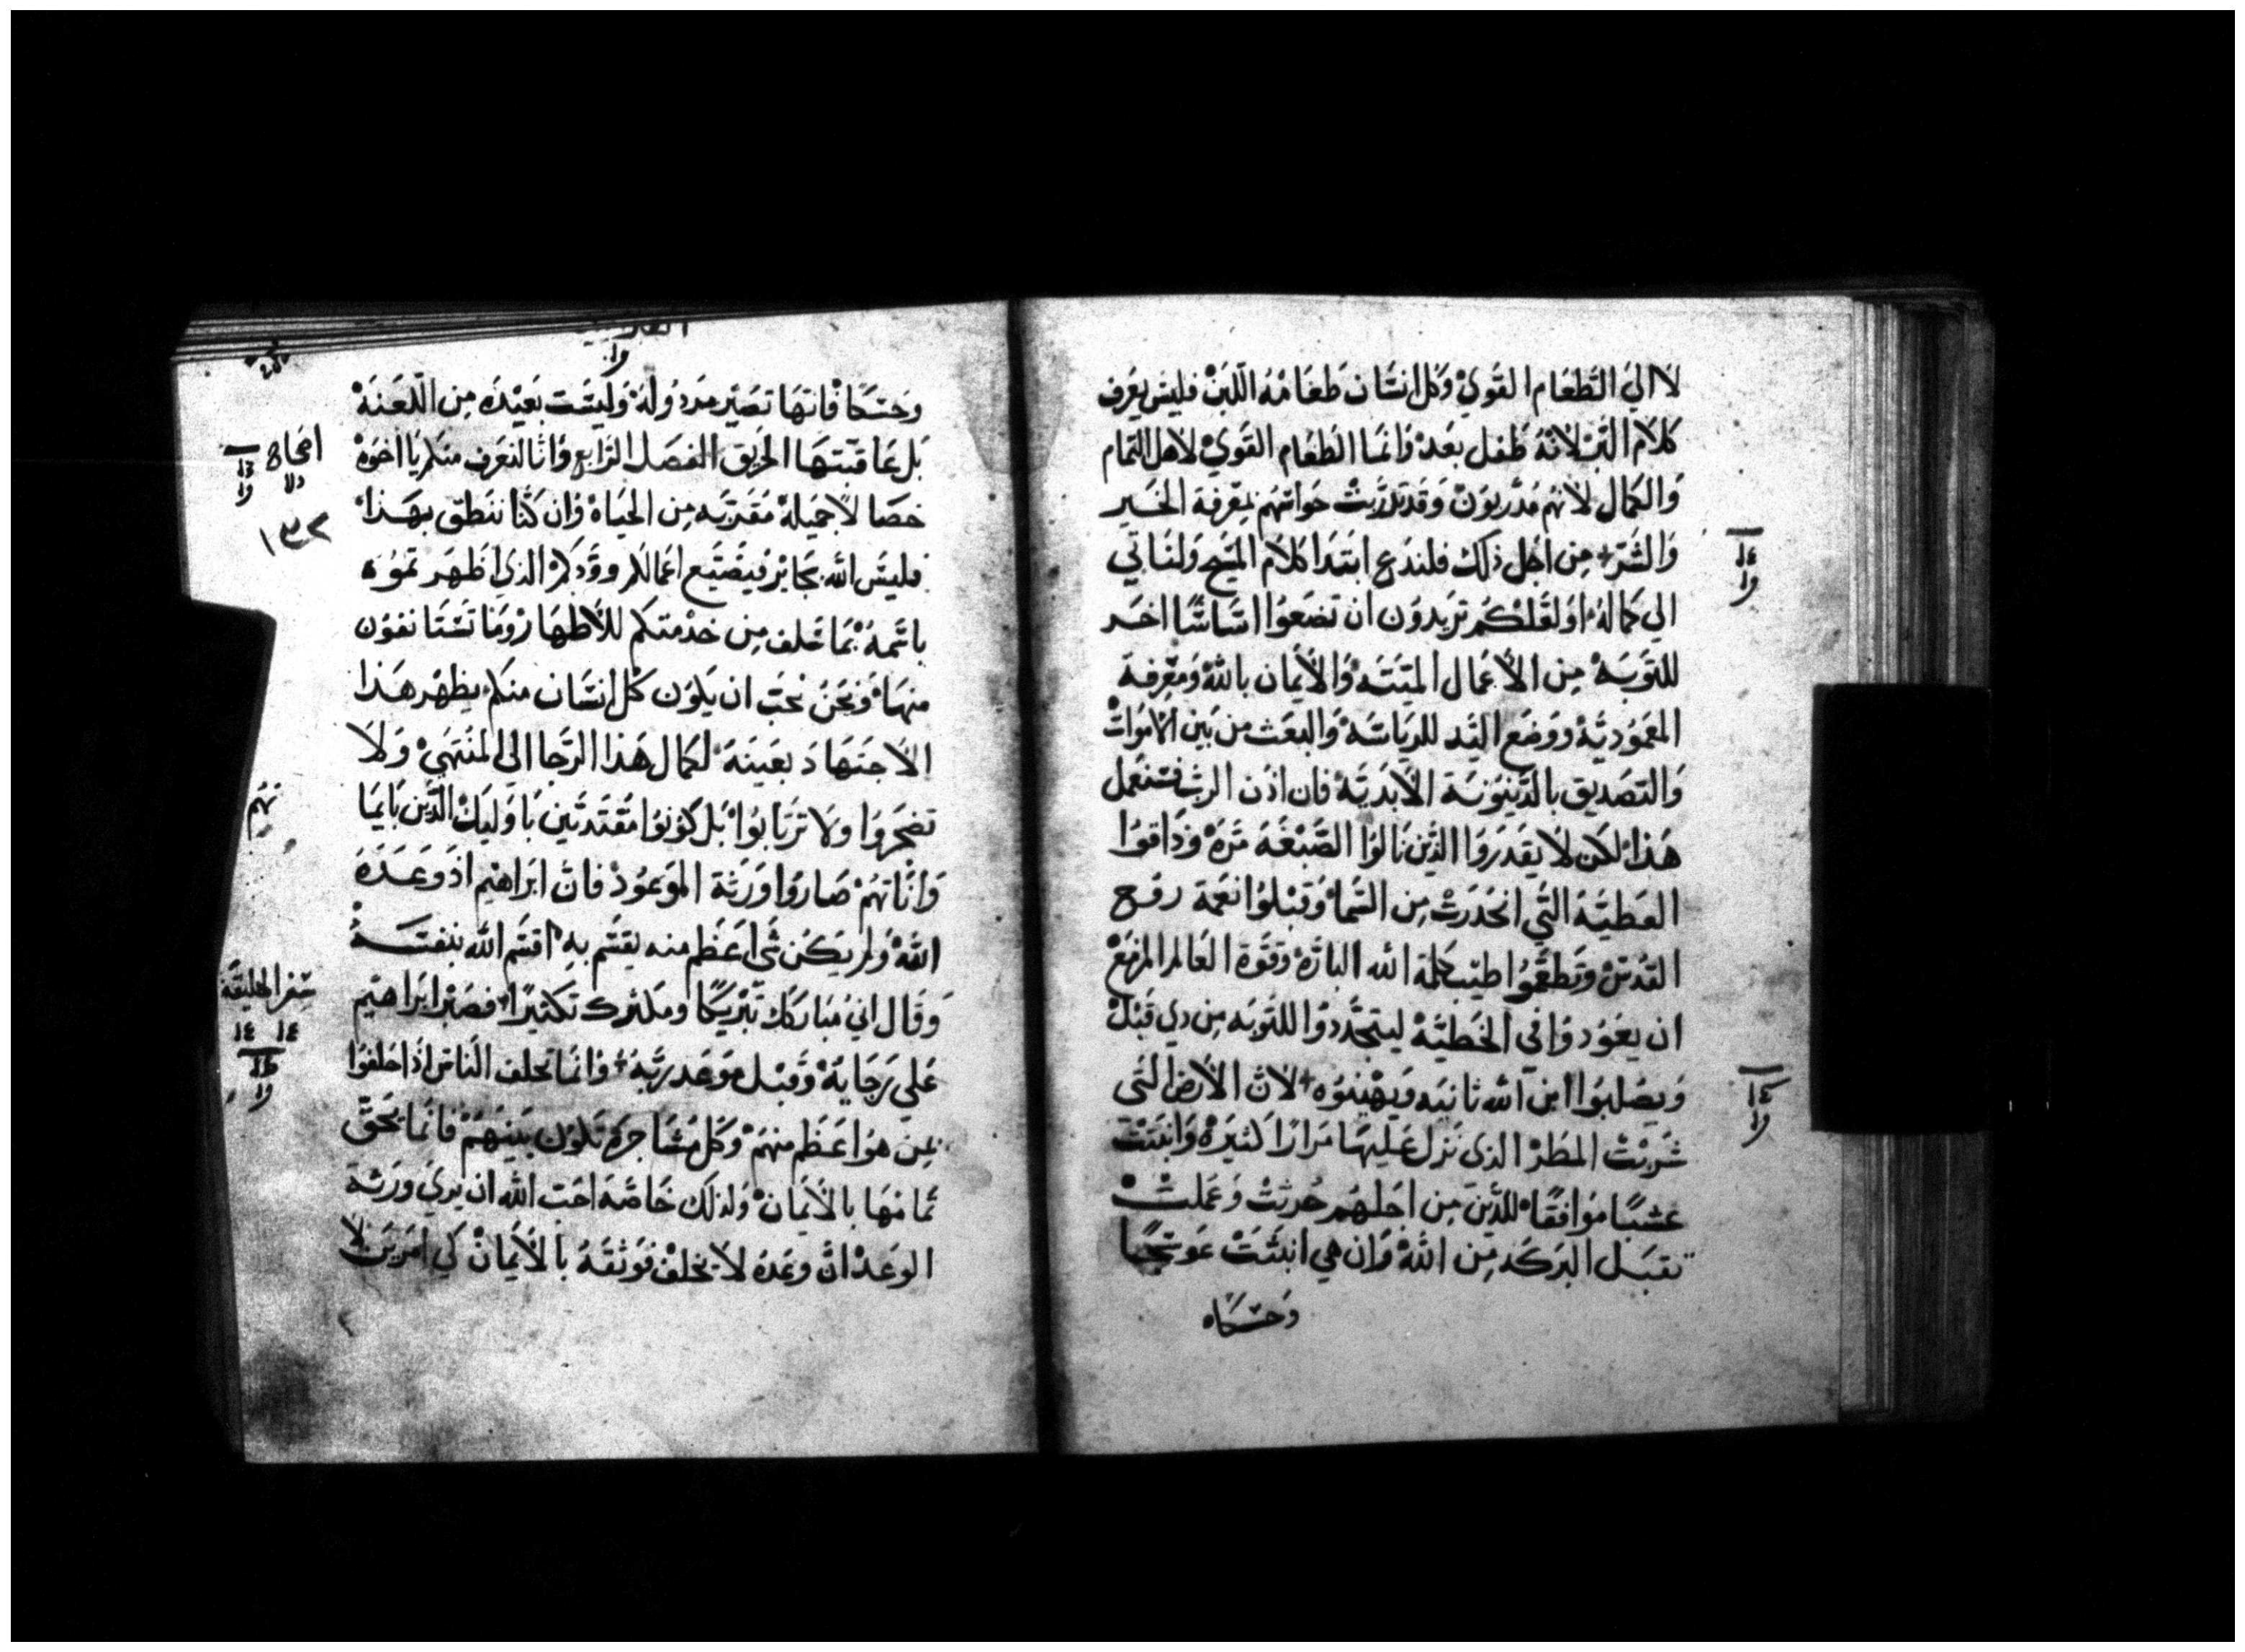 لا الي الطعام القوي وكل انسان طعامه اللبن فليس يعرف
كلام البر لانه طفل بعد وانما الطعام القوي لاهل التمام
والكمال لانهم مدربون وقد تدربت حواسهم بمعرفة الخير
والشر من اجل ذلك فلندع ابتدا كلام المسيح ولناتي
الي كماله او لعلكم تريدون ان تضعوا اساسًا اخر
للتوبة من الاعمال الميتة والايمان بالله ومعرفة
المعمودية ووضع اليد للرياسة والبعث من بين الاموات
والتصديق بالدينونة الابدية فان اذن الرب فسنعمل
هذا لكن لا يقدروا الذين نالوا الصبغة مرة وذاقوا
العطية التي انحدرت من السما وقبلوا نعمة روح
القدس وتطعموا طيب كلمة الله البارة وقوة العالم المزمع
ان يعودوا في الخطية ليتجددوا للتوبه من ذي قبل
ويصلبوا ابن الله ثانيه ويهينوه لان الارض التي
شربت المطر الذي نزل عليها مرارًا كثيرة وانبتت
عشبًا موافقًا للذين من اجلهم حرثت وعملت
تقبل البركه من الله وان هي انبتت عوسجًا
وحسكًا
وحسكًا فانها تصير مردوله وليست بعيده من اللعنة
بل عاقبتها الحريق الفصل الرابع وانا لنعرف منكم يا اخوة
خصالًا جميلة مقربه من الحياة وان كنا ننطق بهذا
فليس الله بجاير فيضيع اعمالكم وودكم الذي اظهرتموه
باسمه بما سلف من خدمتكم للاطهار وما تستانفون
منها ونحن نحب ان يكون كل انسان منكم يظهر هذا
الاجتهاد بعينه لكمال هذا الرجا الي المنتهي ولا
تضجروا ولا ترتابوا بل كونوا مقتدين باوليك الذين بايما
واناتهم صاروا ورثة الموعود فان ابراهيم اذ وعده
الله ولم يكن شي اعظم منه يقسم به اقسم الله بنفسه
وقال اني مباركك تبريكًا ومكثرك تكثيرًا فصبر ابراهيم
علي رجايه وقبل موعد ربه وانما تحلف الناس اذا حلفوا
بمن هو اعظم منهم وكل مشاجرة تكون بينهم فانما تحقق
تمامها بالايمان ولذلك خاصة احب الله ان يري ورثة
الوعد ان وعده لا يخلف فوثقه بالايمان كي امرين لا
١٣٢
نهم
سفر الخليقة